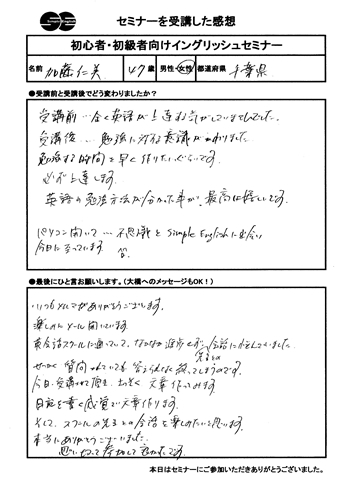 セミナーを受講した感想
初心者・初級者向けイングリッシュセミナー
名前 加藤仁美 47歳 男性・女性 都道府県 千葉県
●受講前と受講後でどう変わりましたか？
受講前…全く英語が上達する気がしていませんでした。
受講後…勉強に対する意識がかわりました。
勉強する時間を早く作りたいぐらいです。
必ず上達します。
英語の勉強方法が分かった事が、最高に嬉しいです。
パソコン開いて…不思議とSimple Englishに出会い
今日に至っています
●最後にひと言お願いします。（大橋へのメッセージもOK！）
いつもメルマガありがとうございます。
楽しみにメール開いています。
英会話スクールに通っていて、なかなか進歩せず会話にかんしていました。
先生の
せっかく質問
今日、受講させて頂き、文章作ってみます
日記を書く感覚で文章作ります。
そして、スクールの先生との会話を楽しみたいと思います。
本当にありがとうございました。
思い切って参加して良かったです。
本日はセミナーにご参加いただきありがとうございました。